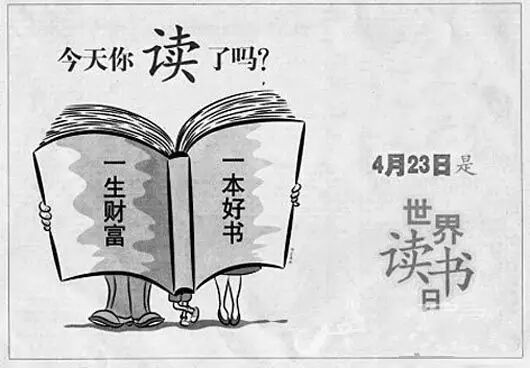 今天你读了吗?
一本好书
一生财富
4月23日是
世界
读书
日